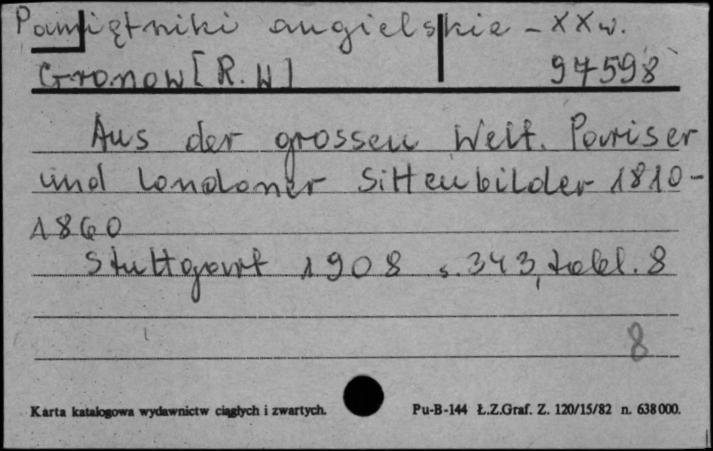 Pamiętniki angielskie - XX w.
Gronow [R. W]
97598
Aus der grossen Welt. Pariser
und Londoner Sittenbilder 1810-
1860
Stuttgart 1908 s. 343, tabl. 8
8
Karta katalogowa wydawnictw ciągłych i zwartych.
Pu-B-144 Ł.Z.Graf. Z. 120/15/82 n. 638000.